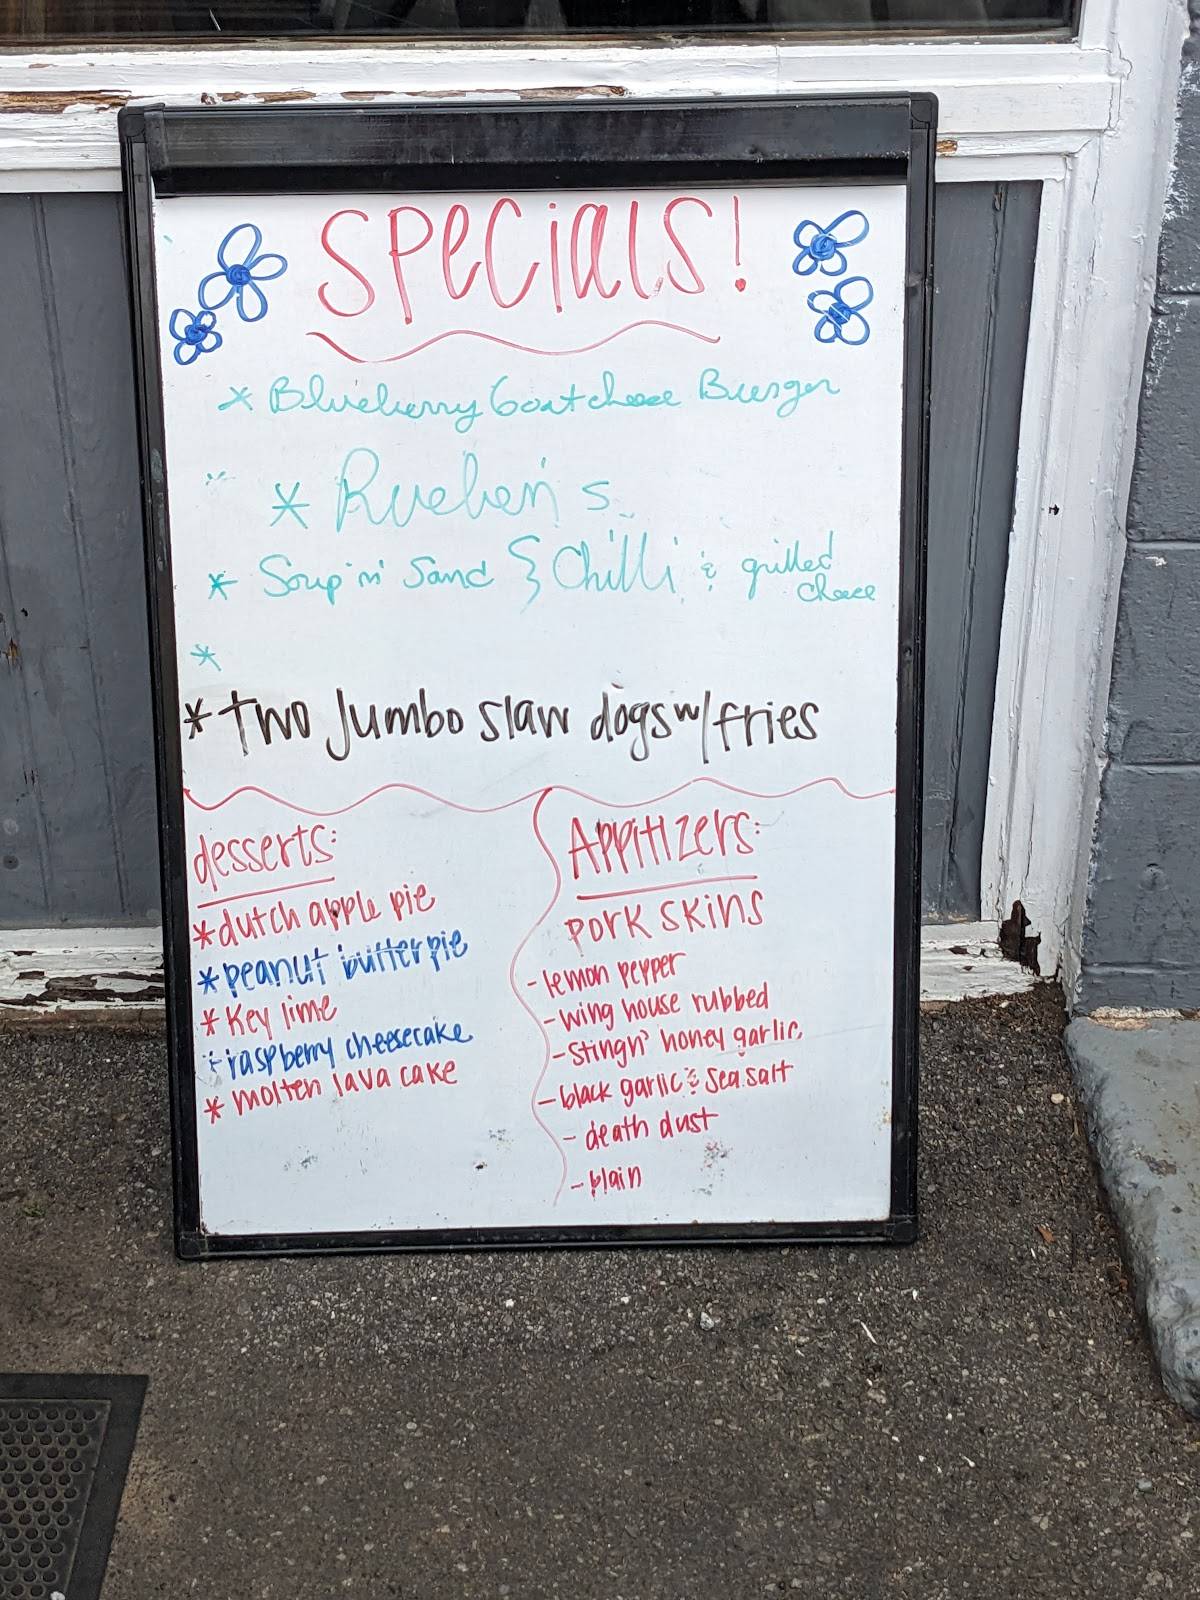 Specials!
* Blueberry Goat cheese Burger
* Rueben's
* Soup 'n' Sand } Chilli & grilled cheese
*
* Two Jumbo slaw dogs w/ fries
desserts:
* dutch apple pie
* peanut butter pie
* Key lime
* raspberry cheesecake
* molten lava cake
Appitizers:
pork skins
- lemon pepper
- wing house rubbed
- stingn' honey garlic
- black garlic & sea salt
- death dust
- plain